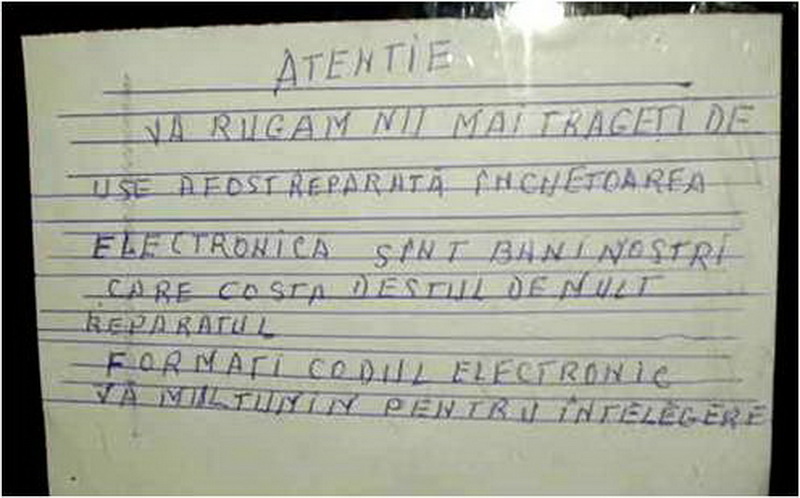 ATENTIE
VĂ RUGAM NU MAI TRAGEȚI DE
USE A FOST REPARATĂ ÎNCHETOAREA
ELECTRONICA SÎNT BANI NOSTRI
CARE COSTA DESTUL DE MULT
REPARATUL
FORMATI CODUL ELECTRONIC
VĂ MULTUMIN PENTRU ÎNTELEGERE